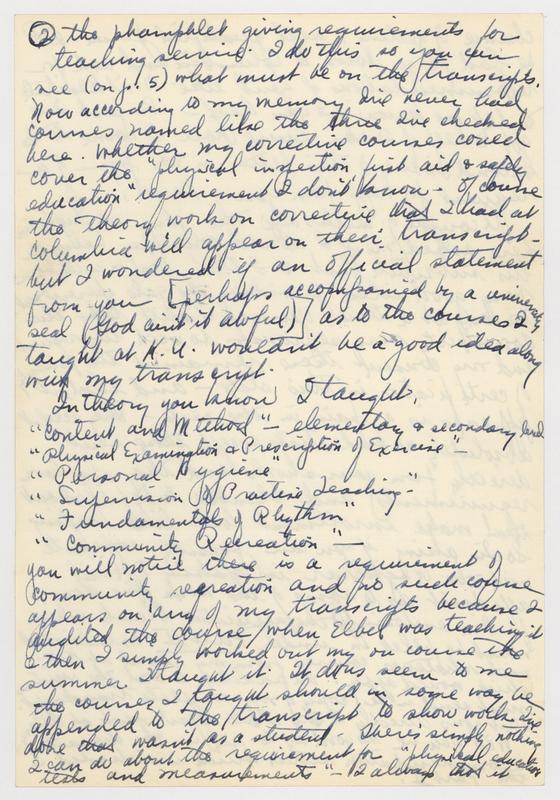 ② the phamphlet giving requirements for
teaching service. I do this so you can
see (on p. 5) what must be on the transcripts.
Now according to my memory I've never had
courses named like the three I've checked
here. Whether my corrective courses could
cover the "physical inspection first aid & safety
education" requirement I don't know - Of course
the theory work on corrective that I had at
Columbia will appear on their transcript -
but I wondered if an official statement
from you [perhaps accompanied by a university
seal (God ain't it awful)] as to the courses I
taught at K.U. wouldn't be a good idea along
with my transcript.
In theory you know I taught:
"Content and Method" - elementary & secondary level
"Physical Examination & Prescription of Exercise" -
"Personal Hygiene"
"Supervision of Practise Teaching" -
"Fundamentals of Rhythm"
"Community Recreation" -
You will notice there is a requirement of
Community recreation and no such course
appears on any of my transcripts because I
audited the course when Elbel was teaching it
& then I simply worked out my own course the
summer I taught it. It does seem to me
the courses I taught should in some way be
appended to the transcript to show work I've
done that wasn't as a student. There's simply nothing
I can do about the requirement for "physical education
tests and measurements" - I always that it